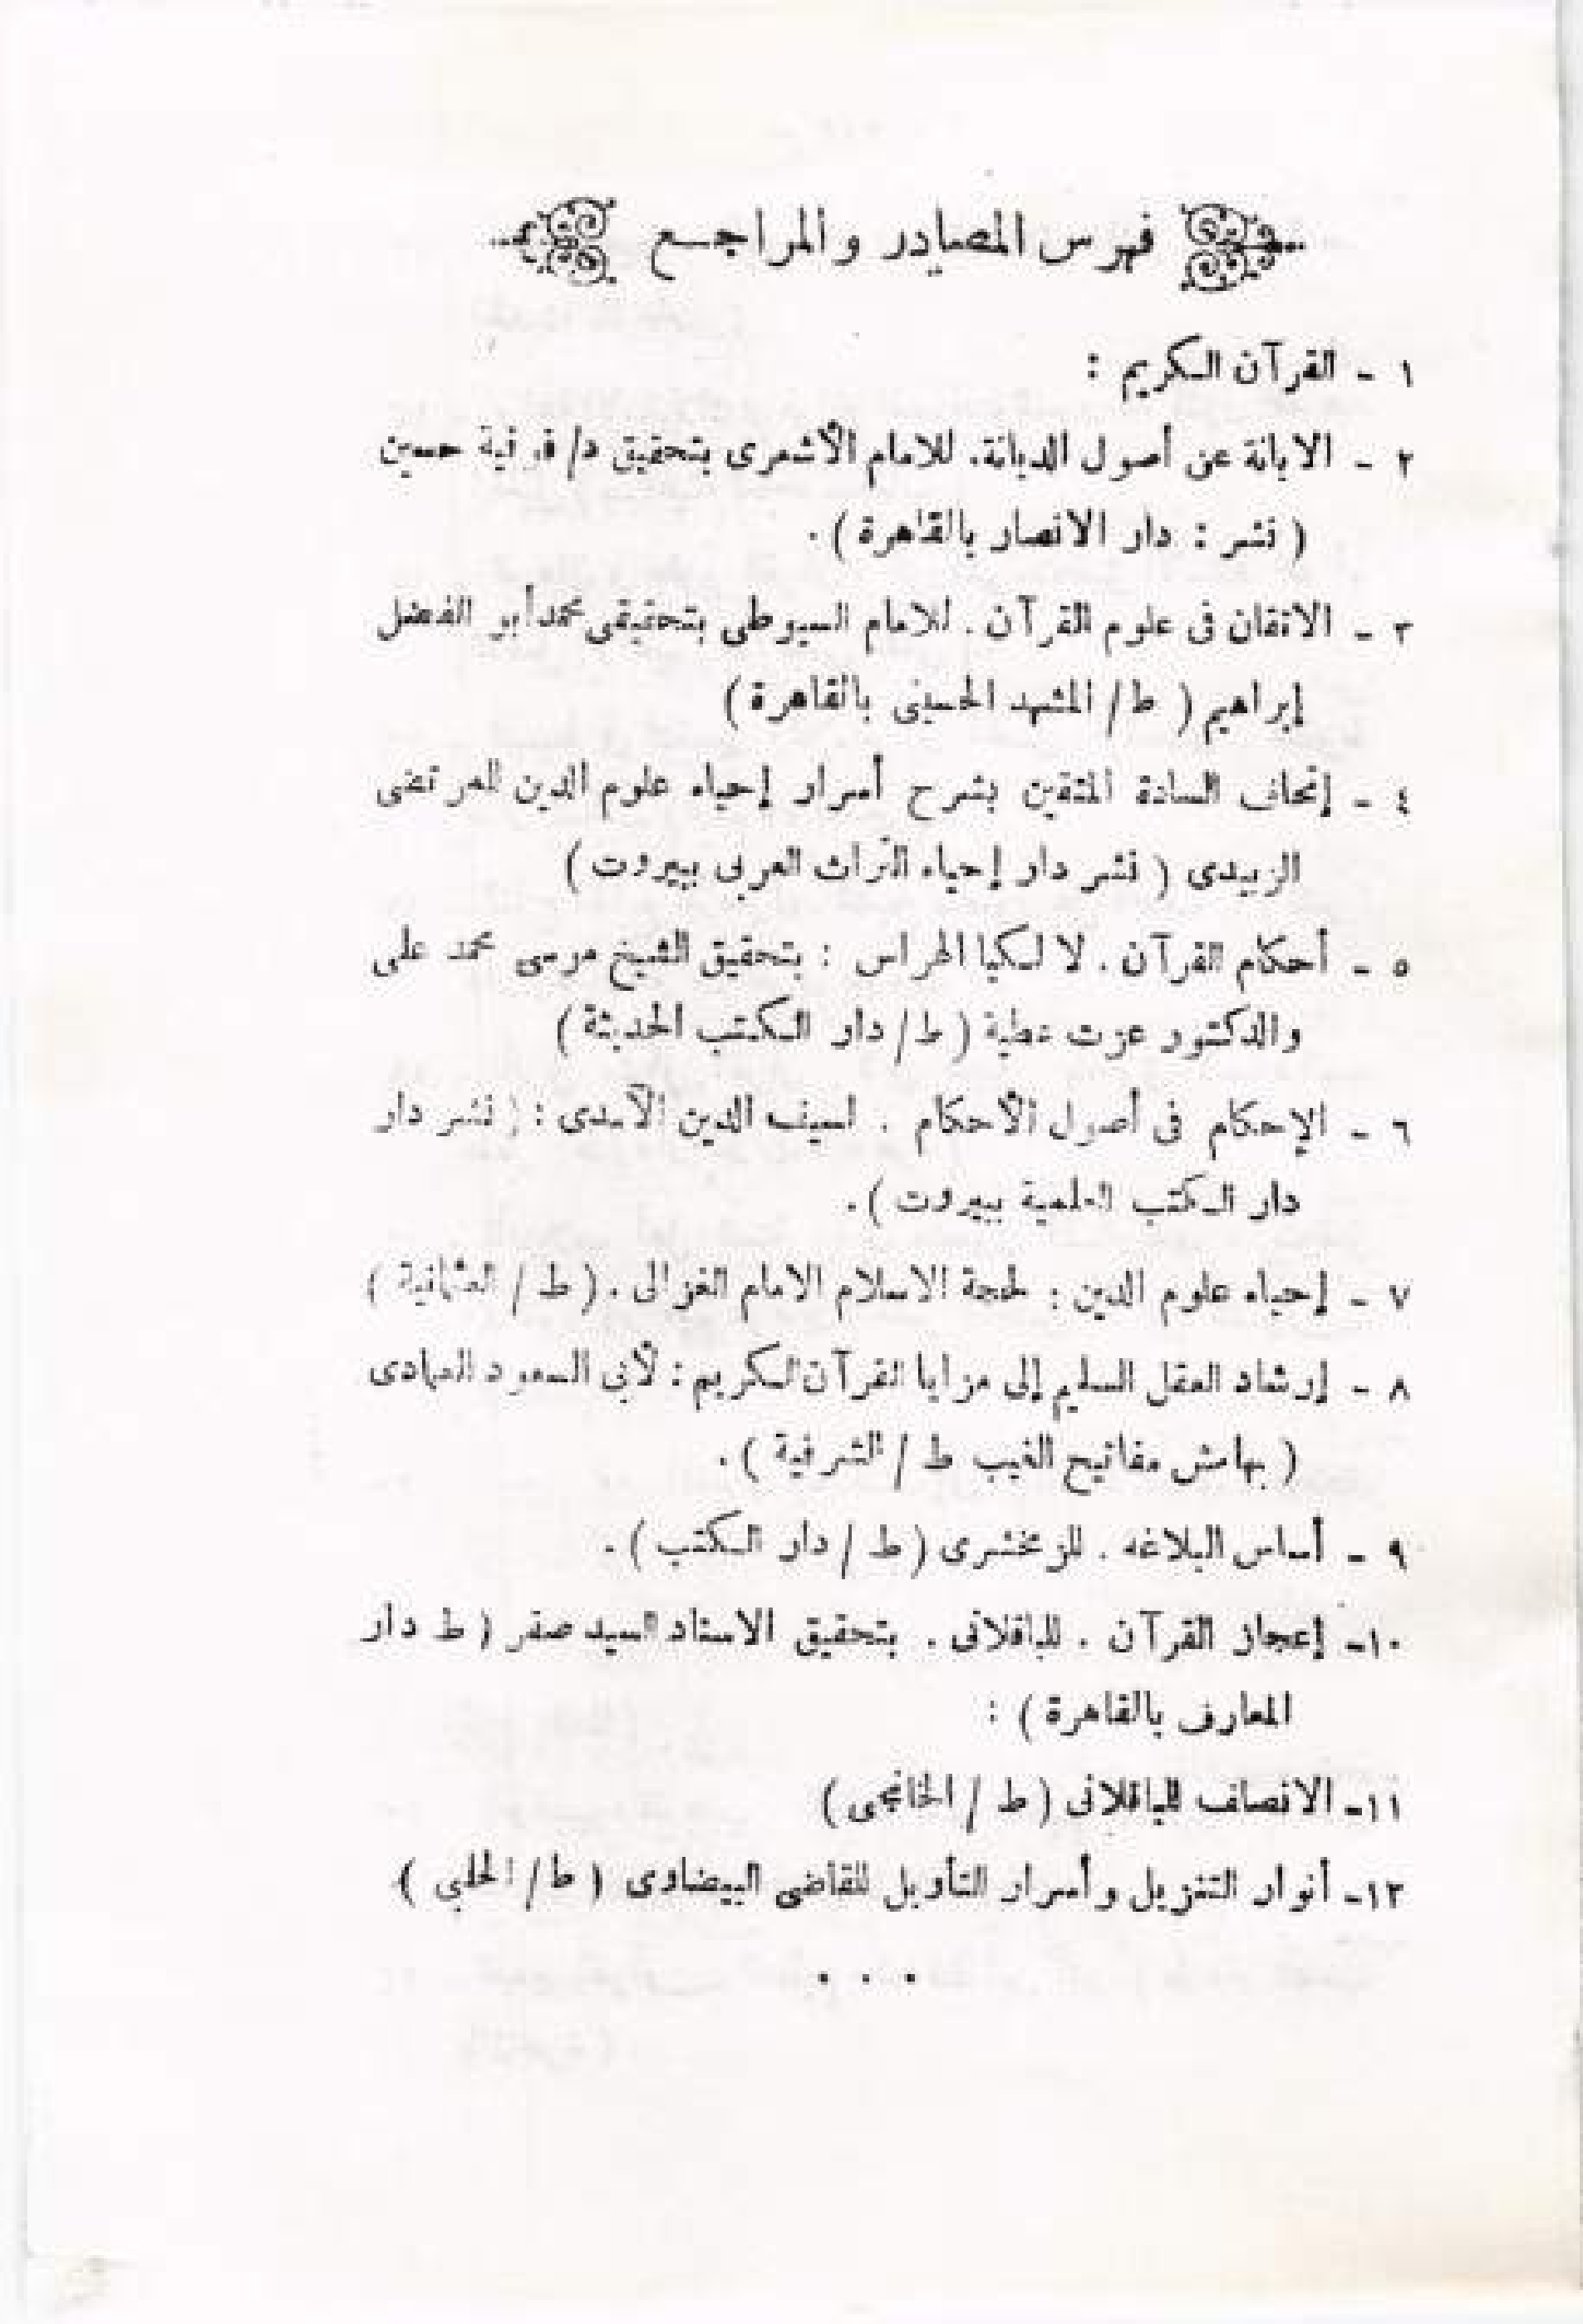 فهرس المصادر والمراجـــع
١ - القرآن الكريم :
٢ - الابانة عن أصول الديانة. للامام الأشعرى بتحقيق د/ فوقية حسين
( نشر : دار الانصار بالقاهرة ) .
٣ - الاتقان فى علوم القرآن . للامام السيوطى بتحقيقى محمد أبو الفضل
إبراهيم ( ط/ المشهد الحسينى بالقاهرة )
٤ - إتحاف السادة المتقين بشرح أسرار إحياء علوم الدين للمرتضى
الزبيدى ( نشر دار إحياء التراث العربى ببيروت )
٥ - أحكام القرآن . لا لكيا الهراس : بتحقيق الشيخ موسى محمد على
والدكتور عزت عطية ( ط/ دار الكتب الحديثة )
٦ - الإحكام فى أصول الأحكام . لسيف الدين الآمدى : ( نشر دار
دار الكتب العلمية ببيروت ) .
٧ - إحياء علوم الدين : لحجة الاسلام الامام الغزالى . ( ط / العثمانية )
٨ - إرشاد العقل السليم إلى مزايا القرآن الكريم : لأبى السعود العمادى
( بهامش مفاتيح الغيب ط / الشرفية ) .
٩ - أساس البلاغه . للزمخشرى ( ط / دار الكتب ) .
١٠- إعجاز القرآن . للباقلانى . بتحقيق الاستاد السيد صقر ( ط دار
المعارف بالقاهرة ) :
١١- الانصاف للباقلانى ( ط / الخانجى )
١٢- أنوار التنزيل وأسرار التأويل للقاضى البيضاوى ( ط/ الحلبي )
. . .